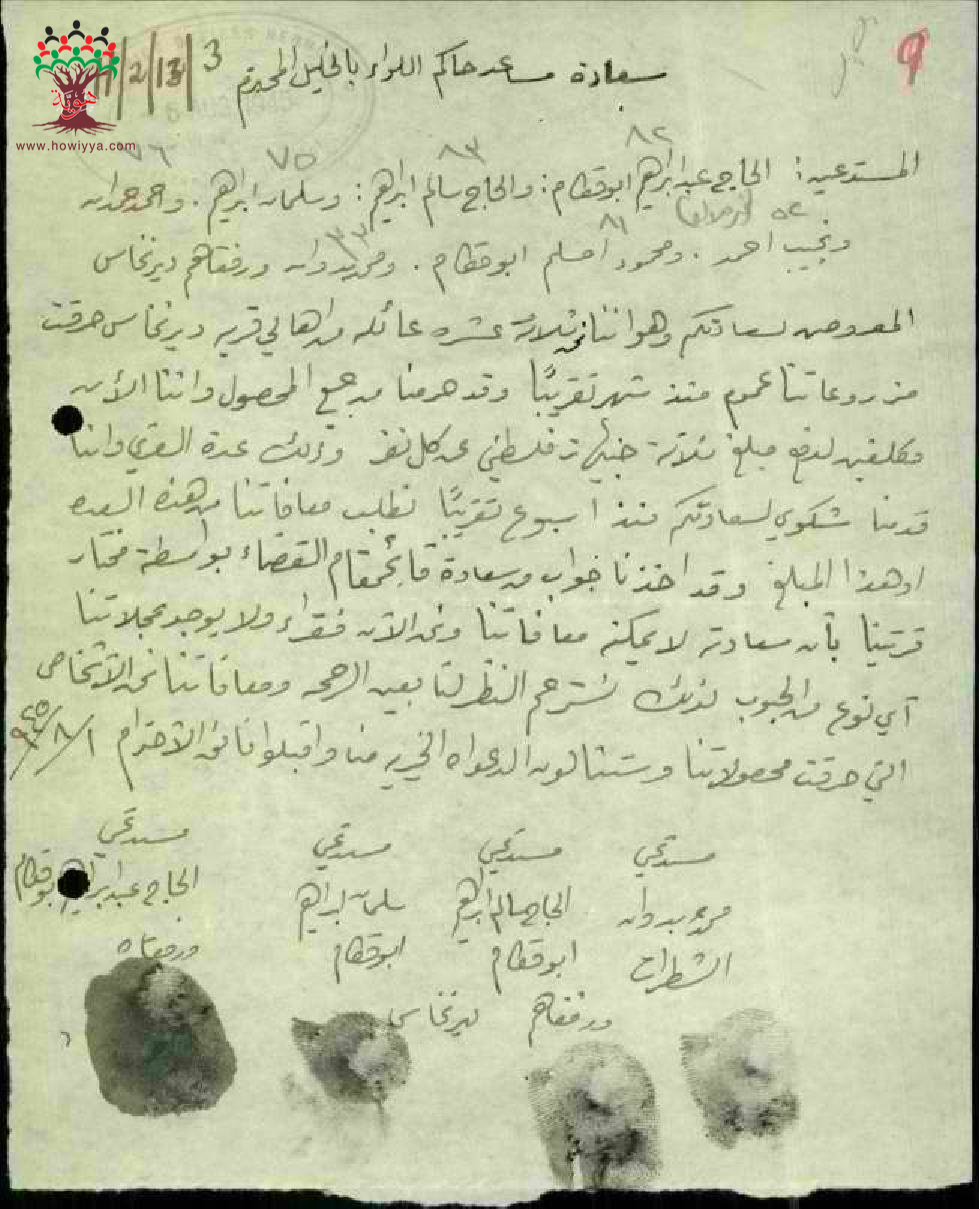 9
11/2/13/3
www.howiyya.com
سعادة مساعد حاكم اللواء بالخليل المحترم
٨٢ ٨٣ ٧٥ ٧٦
المستدعين: الحاج عبد ابراهيم ابوقطام: والحاج سالم ابراهيم: وسلمان ابراهيم. واحمد حمدان
٥٥ ٨١ ٣٣
ونجيب احمد. ومحمود امسلم ابوقطام. ومحمد بدوان ورفقاهم ديرنخاس
المعروض لسعادتكم وهو اننا نحن ثلاثة عشره عائله من اهالي قريه ديرنخاس حرقت
مزروعاتنا عموم منذ شهر تقريبًا وقد حرمنا من جميع المحصول واننا الأن
مكلفين لدفع مبلغ ثلاثة جنيهات فلسطيني عن كل نفر وذلك عدة القري واننا
قدمنا شكوي لسعادتكم منذ اسبوع تقريبًا نطلب معافاتنا من هذه
او هذا المبلغ وقد اخذنا جواب من سعادة قائمقام القضاء بواسطة مختار
قريتنا بأن سعادته لا يمكنه معافاتنا ونحن الآن فقراء ولا يوجد بمحلاتنا
أي نوع من الحبوب لذلك نسترحم النظر لنا بعين الرحمه ومعافاتنا نحن الأشخاص
التي حرقت محصولاتنا وستنالون الدعواه الخيريه منا واقبلوا فائق الأحترام ١/٨/٩٤٥
مستدعي مستدعي مستدعي مستدعي
محمد بدوان الحاج سالم ابراهيم سلمان ابراهيم الحاج عبد ابراهيم ابوقطام
الشطرات ابوقطام ابوقطام ورفقاه
ورفقاهم ديرنخاس